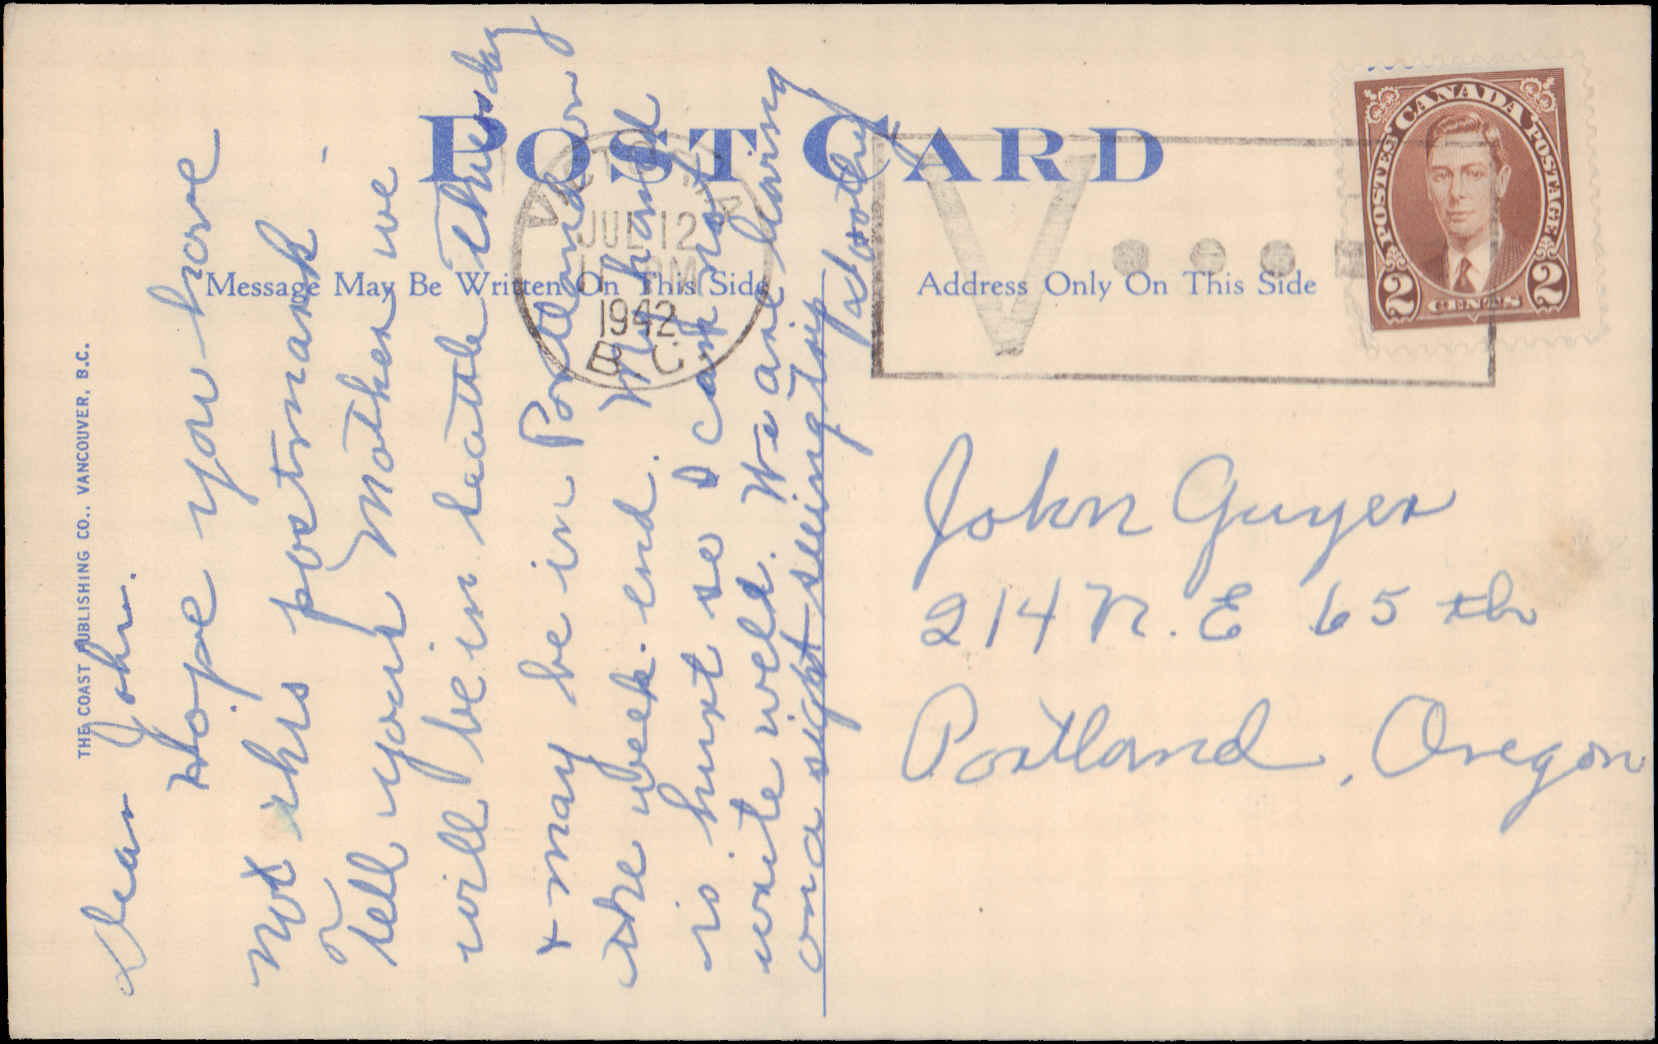 POST CARD
Message May Be Written On This Side
Address Only On This Side
THE COAST PUBLISHING CO., VANCOUVER, B.C.
VICTORIA
JUL 12
PM
1942
B.C.
V
CANADA
POSTES POSTAGE
2 CENTS 2
Dear John.
Hope you have
not this postmark
Tell your Mother we
will be in Seattle Thursday
+ may be in Portland on
the week-end. My hand
is hurt so I can not
write well. We are having
on a sight seeing trip
John Guyer
214 N.E 65 th
Portland, Oregon